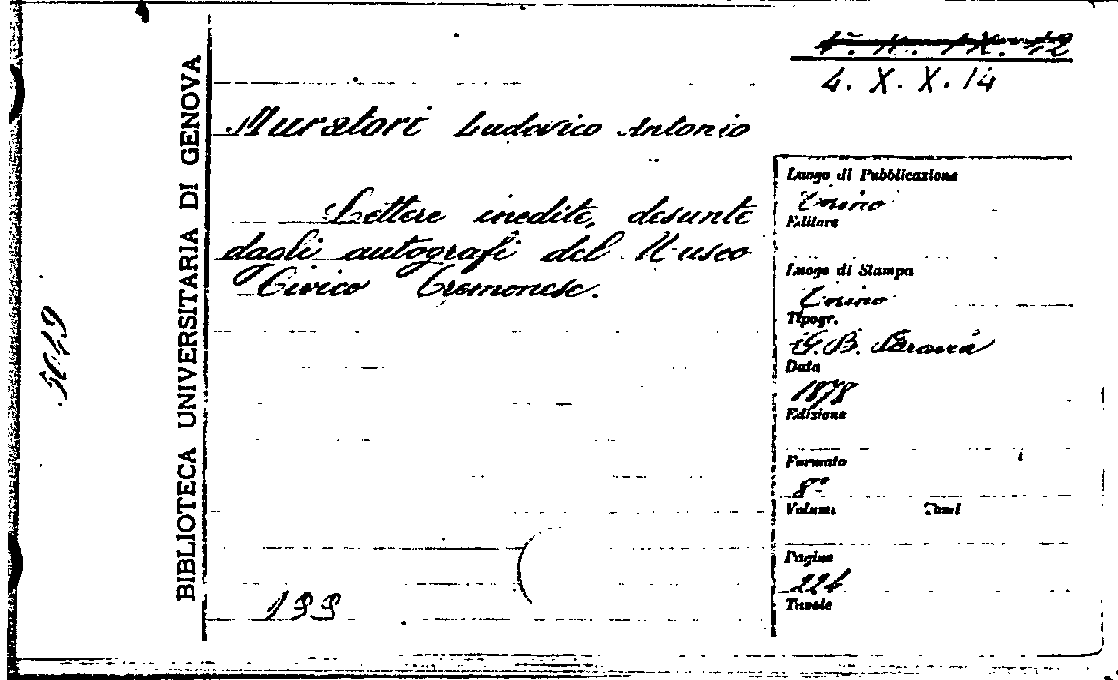 4. X. X. 14
Muratori Ludovico Antonio
Lettere inedite, desunte
dagli autografi del Museo
Civico Cremonese.
199
BIBLIOTECA UNIVERSITARIA DI GENOVA
5049
Luogo di Pubblicazione
Torino
Editore
Luogo di Stampa
Torino
Tipogr.
G.B. Paravia
Data
1878
Edizione
Formato
8º
Volumi Tomi
Pagine
224
Tavole